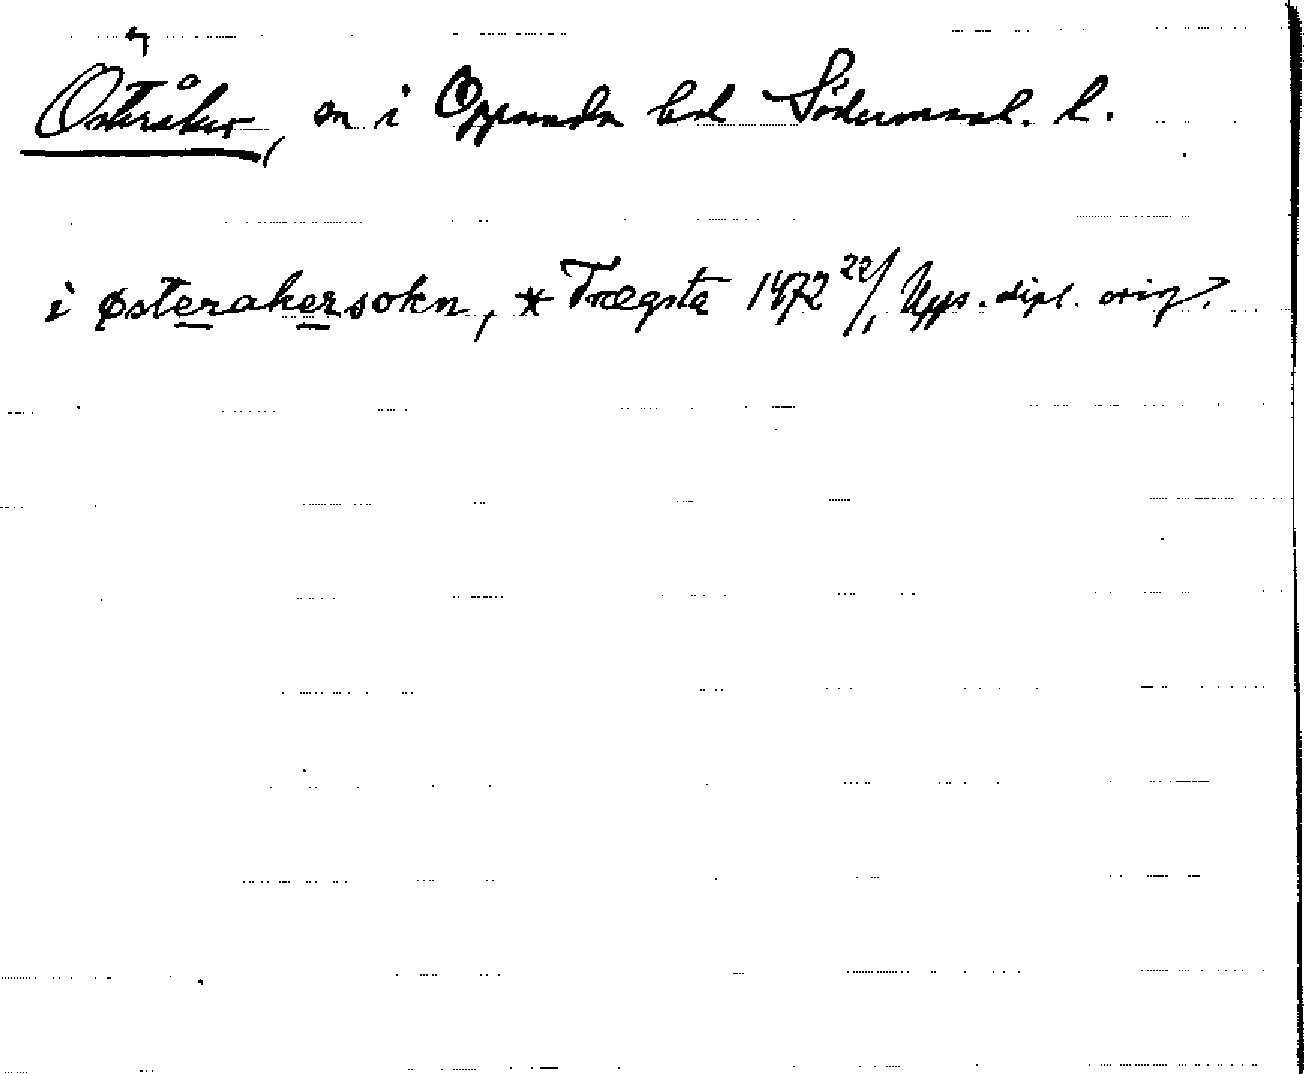 Österåker, sn i Oppunda hd Södermanl. l.
i østerakersokn, * Trægsta 1472 22/1 Upps. dipl. orig.